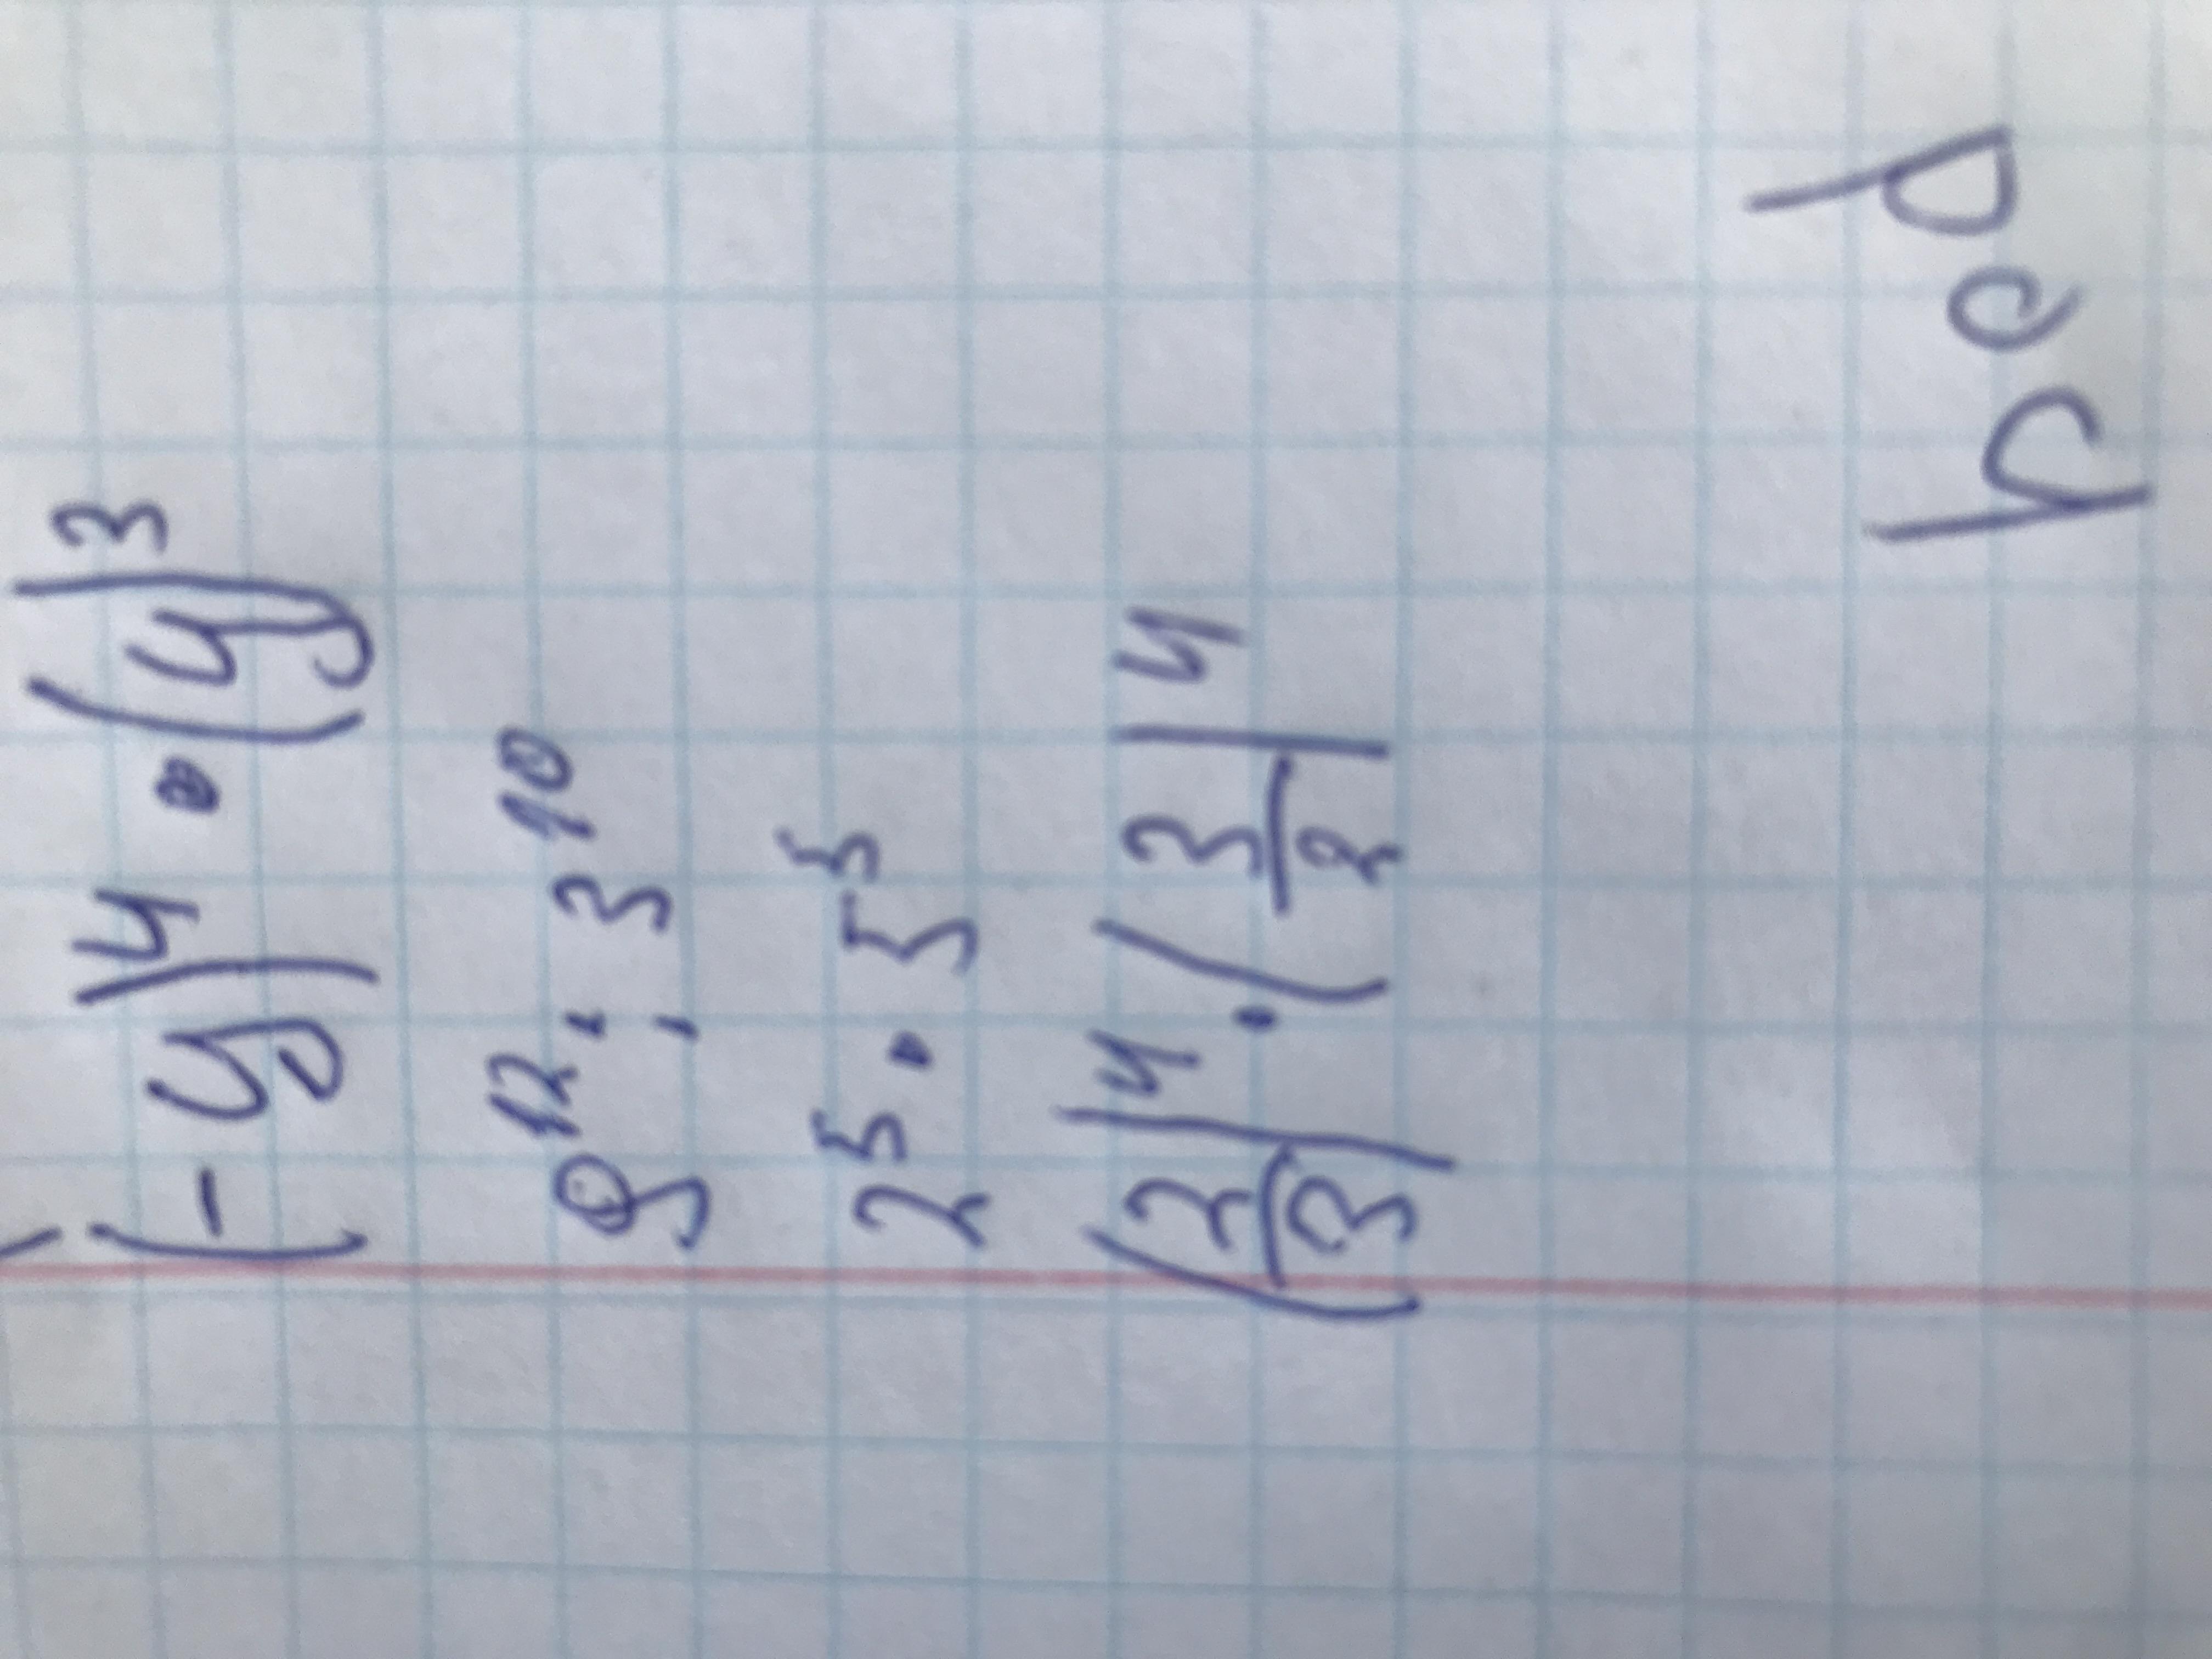 (-y)⁴ · (y)³
9¹² : 3¹⁰
2⁵ · 5⁵
(2/3)⁴ · (3/2)⁴